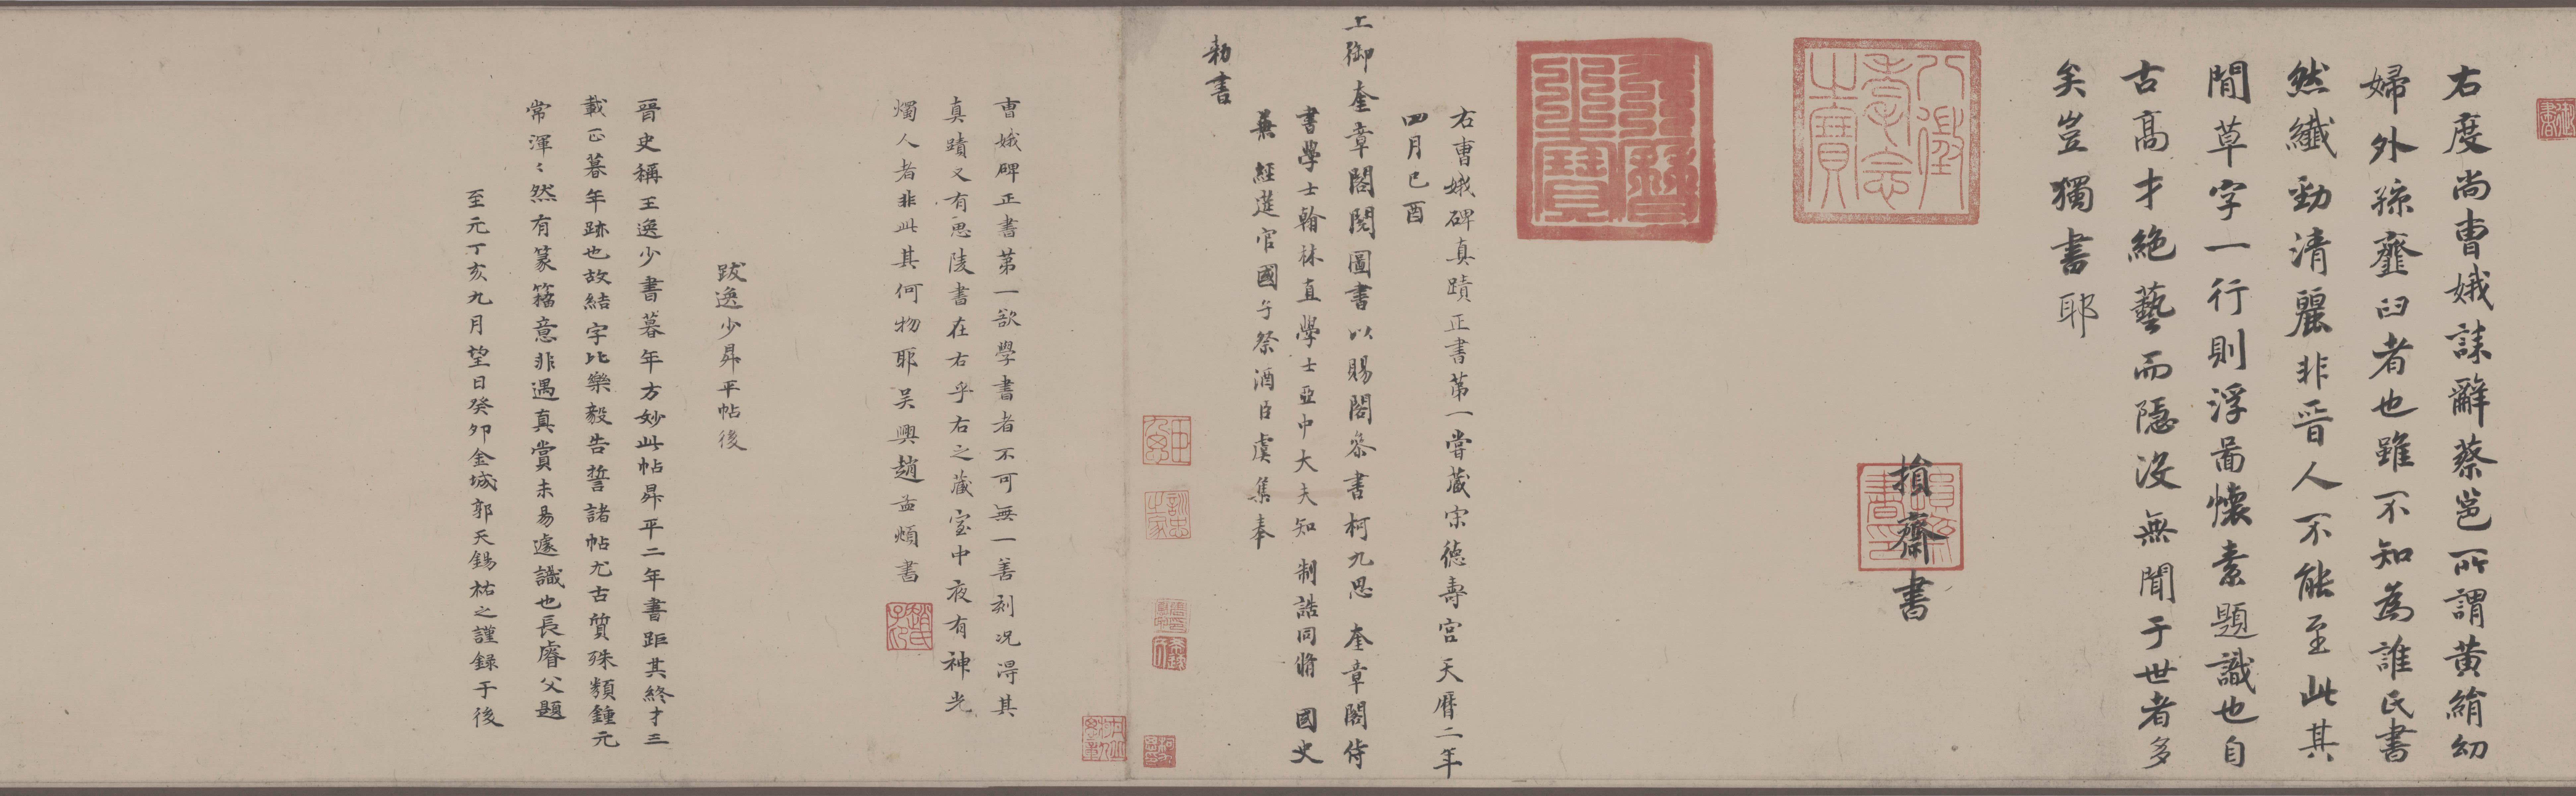 右度尚曹娥誄辭蔡邕所謂黃絹幼
婦外孫齏臼者也雖不知為誰氏書
然纖勁清麗非晉人不能至此其
間草字一行則浮啚懷素題識也自
古高才絕藝而隱沒無聞于世者多
矣豈獨書耶
損齋書
八璽孝㤙之寶
天曆之寶
右曹娥碑真蹟正書第一嘗藏宋德壽宮天曆二年
四月己酉
上御奎章閣閱圖書以賜閣叅書柯九思 奎章閣侍
書學士翰林直學士亞中大夫知 制誥同脩 國史
兼 經筵官國子祭酒臣虞集奉
勑書
曹娥碑正書第一欲學書者不可無一善刻況淂其
真蹟又有思陵書在右乎右之藏室中夜有神光
燭人者非此其何物耶吳興趙孟頫書
趙氏子昂
跋逸少昇平帖後
晉史稱王逸少書暮年方妙此帖昇平二年書距其終才三
載正暮年跡也故結字比樂毅告誓諸帖尤古質殊類鍾元
常渾〻然有篆籀意非遇真賞未易遽識也長睿父題
至元丁亥九月望日癸卯金城郭天錫祐之謹錄于後